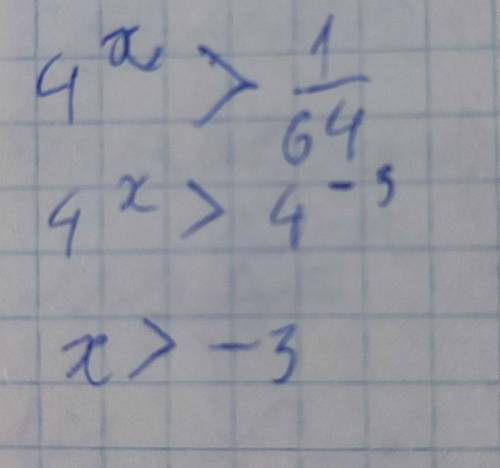 4^x > 1/64
4^x > 4^-3
x > -3